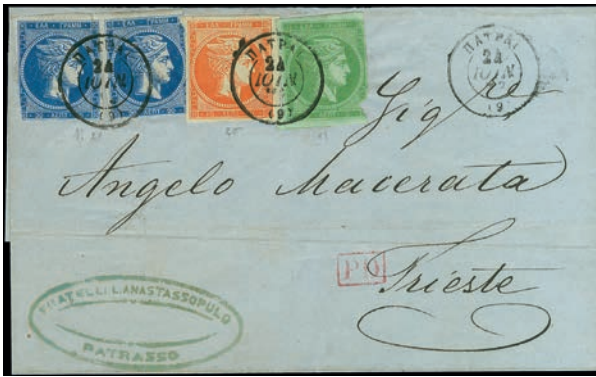 ΕΛΛ ΓΡΑΜΜ
ΕΛΛ ΓΡΑΜΜ
ΠΑΤΡΑΙ
24
ΙΟΥΝ
(9)
ΠΑΤΡΑΙ
24
ΙΟΥΝ
(9)
ΠΑΤΡΑΙ
24
ΙΟΥΝ
(9)
Sig re
Angelo Macerata
PD
Trieste
FRATELLI L. ANASTASSOPULO
PATRASSO